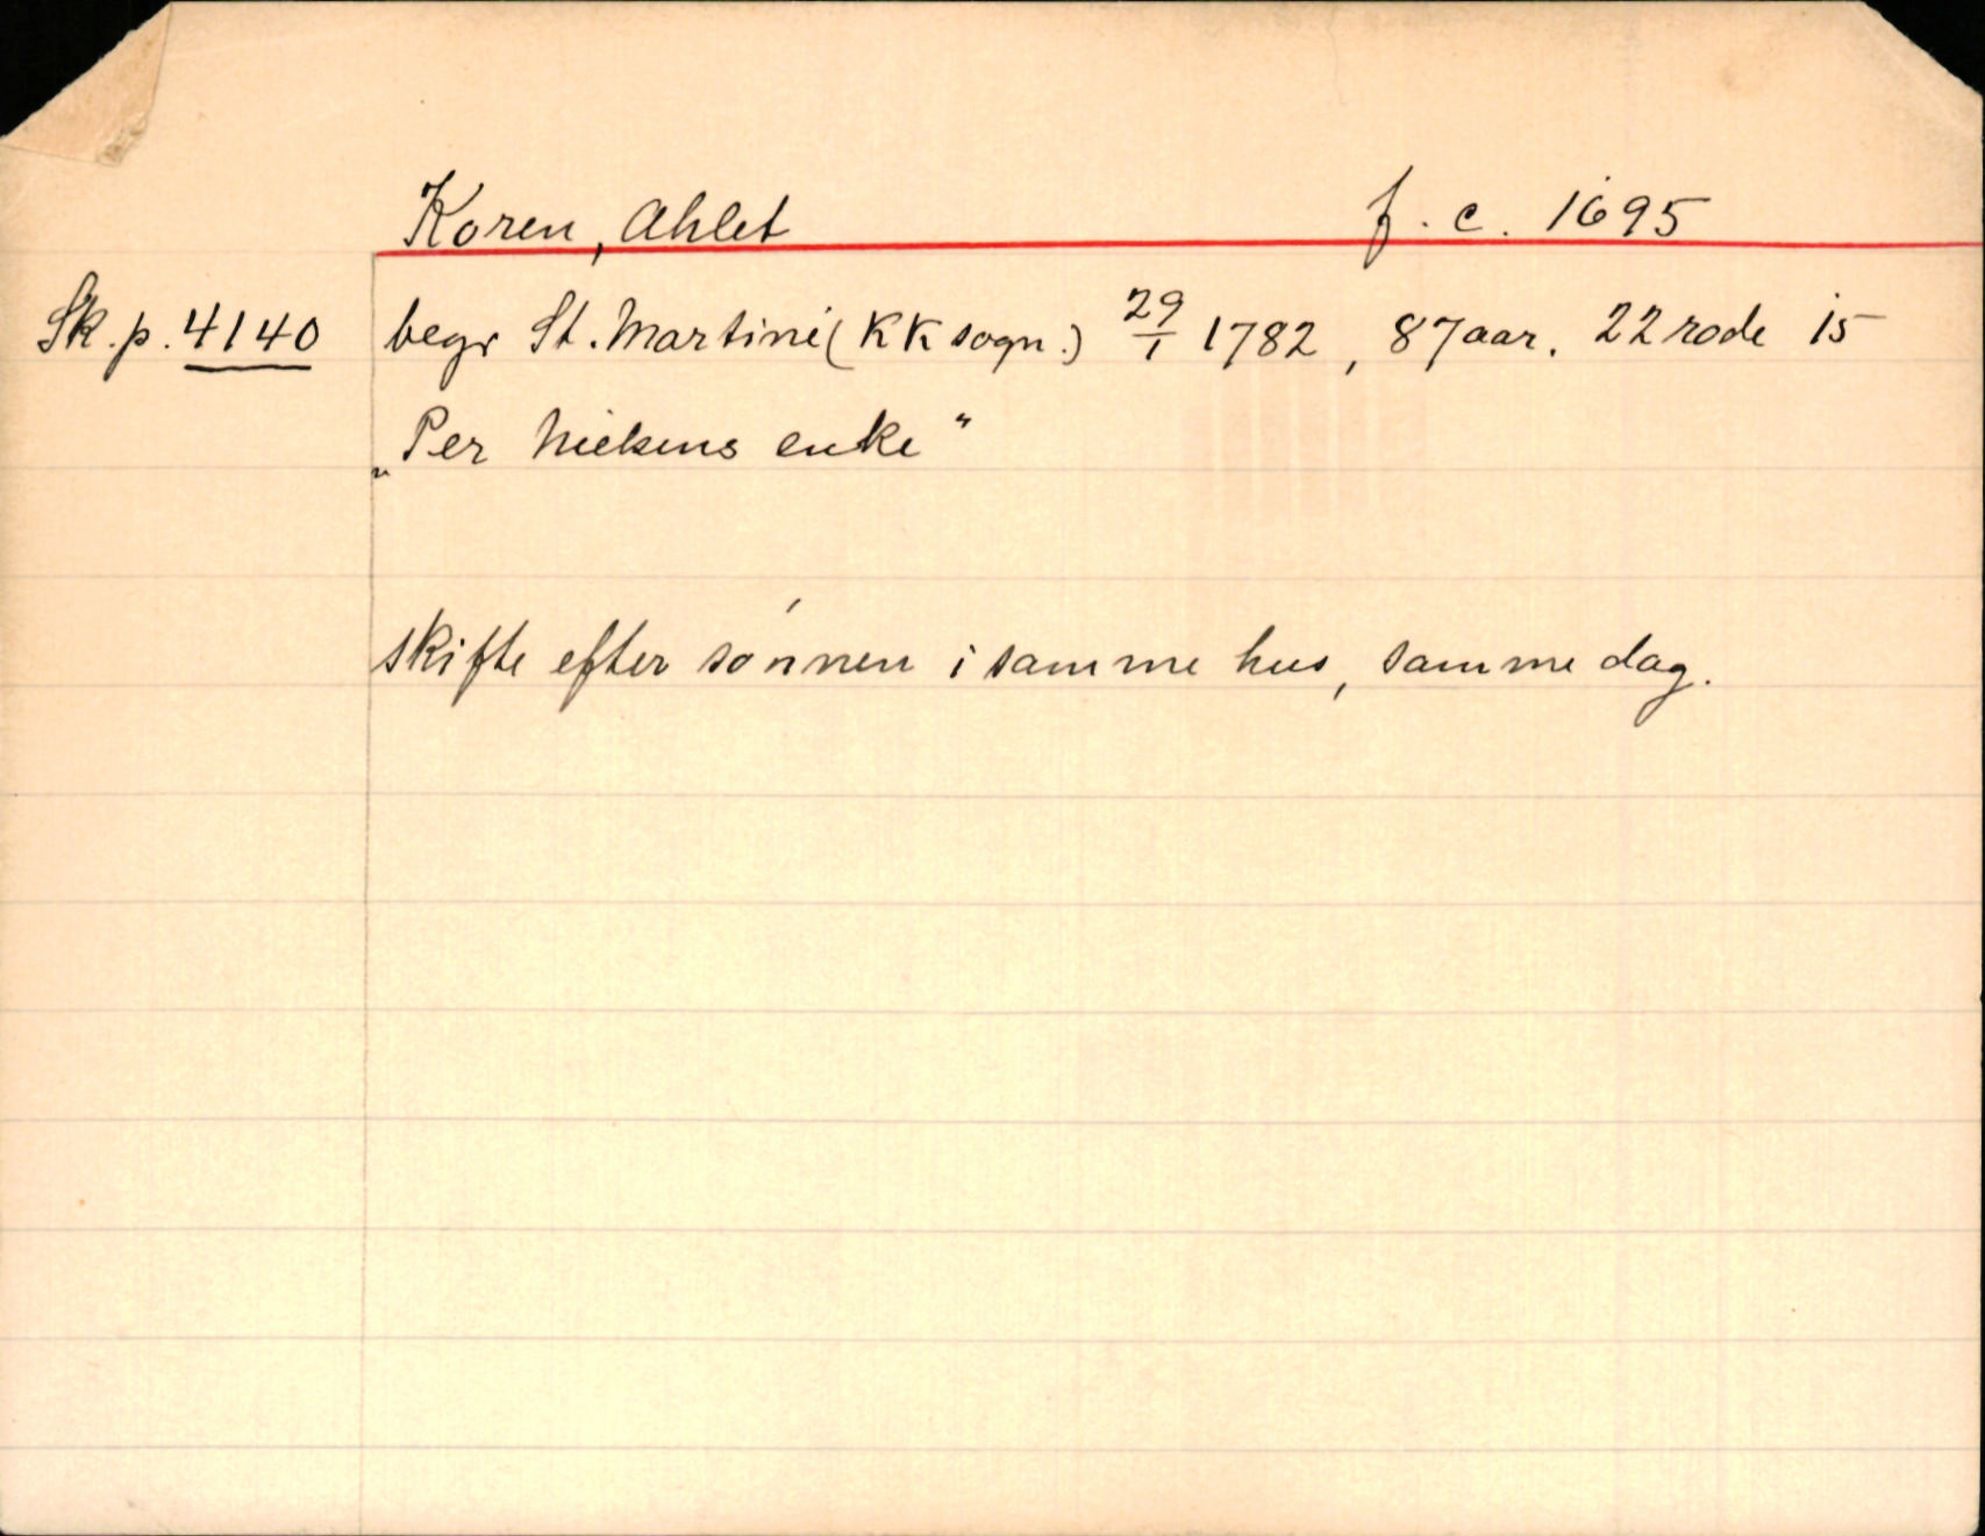 Koren, Ahlet f. c. 1695
Sk. p. 4140 begr St. Martini (KK sogn.) 29/1 1782, 87 aar. 22 rode 15
„Per Nielsens enke"
skifte efter sónnen i samme hus, samme dag.